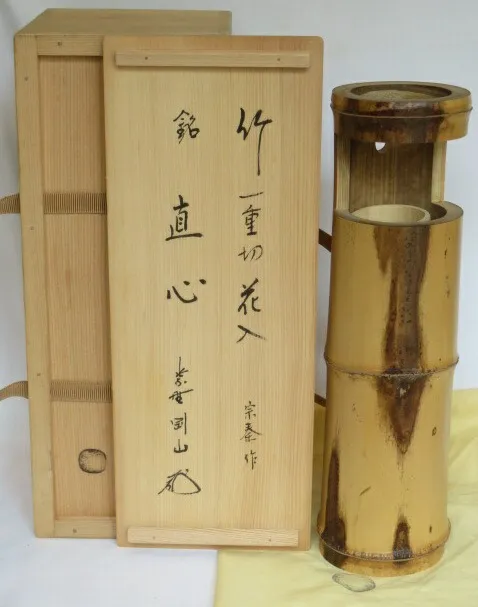 竹一重切花入
宗作
銘 直心
紫野剛山